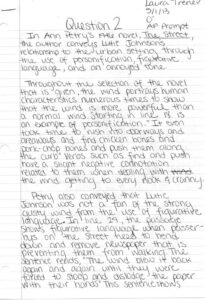 Laura Trener
5/1/13
Question 2
AP Prompt
In Ann Petry's 1946 novel, The Street,
the author conveys Lutie Johnson's
relationship to the urban setting through
the use of personification, figurative
language, and an annoyed tone.
Throughout the selection of the novel
that is given, the wind portrays human
characteristics numerous times to show
that the wind is more powerful than
a normal wind. Starting in line 18 is
an example of personification. "It even
took time to rush into doorways and
areaways and find chicken bones and
pork-chop bones and push them along
the curb." Verbs such as find and push
have a slight negative connotation
related to them when dealing with
the wind, getting to every nook & cranny.
Petry also conveyed that Lutie
Johnson was not a fan of the strong
gusty wind from the use of figurative
language. In line 29, the
shows figurative language when passer-
bys on the street need to bend
down and remove newspaper that is
preventing them from walking. The
sentence reads, "The wind blew it back
again and again until they were
forced to stoop and dislodge the paper
with their hands." This sentence shows